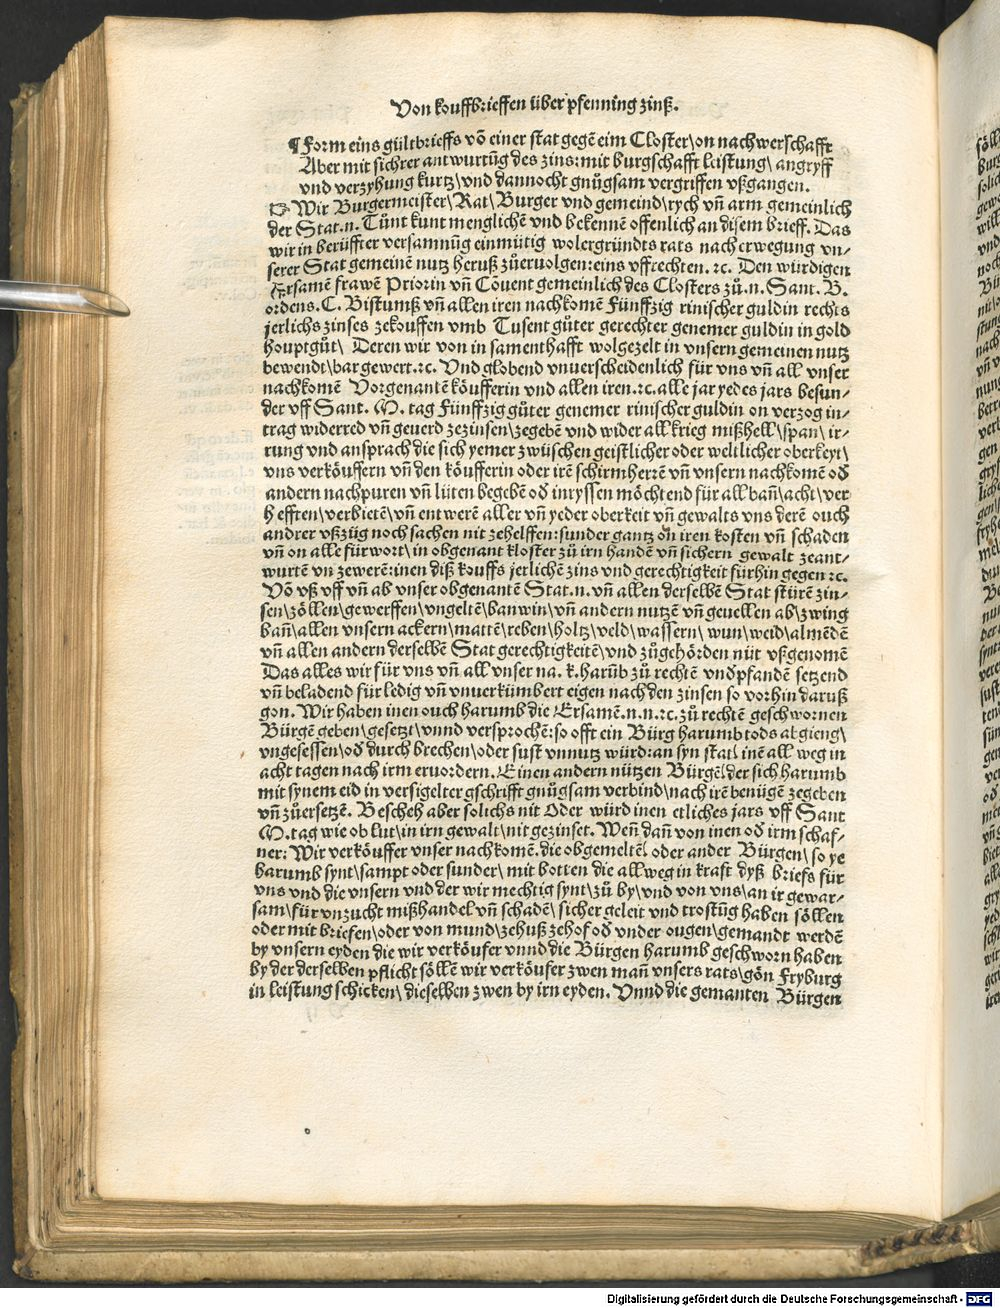 Von kouffbrieffen über pfenning zinß.
¶ Form eins gültbrieffs võ einer stat gegẽ eim Closter/on nachwerschafft
Aber mit sichrer antwurtũg des zins: mit burgschafft leistung\ angryff
vnd verzyhung kurtz\vnd dannocht gnůgsam vergriffen vßgangen.
☞ Wir Burgermeister/Rat/Burger vnd gemeind/rych vñ arm gemeinlich
der Stat.n. Tůnt kunt menglichẽ vnd bekennẽ offenlich an disem brieff. Das
wir in berůffter versamnũg einmütig wolergründts rats nach erwegung vn-
serer Stat gemeinẽ nutz heruß zůeruolgen: eins vffrechten. ꝛc. Den würdigen
Ersamẽ frawẽ Priorin vñ Cõuent gemeinlich des Closters zů.n. Sant. B.
ordens. C. Bistumß vñ allen iren nachkomẽ Fünffzig rinischer guldin rechts
jerlichs zinses zekouffen vmb Tusent gůter gerechter genemer guldin in gold
houptgůt\ Deren wir von in samenthafft wolgezelt in vnsern gemeinen nutz
bewendt\bar gewert.ꝛc. Vnd globend vnuerscheidenlich für vns vñ all vnser
nachkomẽ Vorgenantẽ kóufferin vnd allen iren.ꝛc. alle jar yedes jars besun-
der vff Sant. M. tag Fünffzig gůter genemer rinischer guldin on verzog in-
trag widerred vñ geuerd zezinsen/zegebẽ vnd wider all krieg mißhell\span\ ir-
rung vnd ansprach die sich yemer zwüschen geistlicher oder weltlicher oberkeyt\
vns verkóuffern vñ den kóufferin oder irẽ schirmherrẽ vñ vnsern nachkomẽ oď
andern nachpuren vñ lüten begebẽ oď inryssen mõchtend für all bañ\acht\ver
hefften\verbietẽ\vñ entwerẽ aller vñ yeder oberkeit vñ gewalts vns derẽ ouch
andrer vßzüg noch sachen nit zehelffen: sunder gantz on iren kosten vñ schaden
vñ on alle fürwort\in obgenant kloster zů irn handẽ vñ sichern gewalt zeant-
wurtẽ vn zewerẽ: inen diß kouffs jerlichẽ zins vnd gerechtigkeit fürhin gegen ꝛc.
Võ vß vff vñ ab vnser obgenantẽ Stat.n. vñ allen derselbẽ Stat stürẽ zin-
sen\zóllen\gewerffen\vngeltẽ\banwin\vñ andern nutzẽ vñ geuellen ab\zwing
bañ\allen vnsern ackern\mattẽ\reben\holtz\veld\wassern\ wun\weid\almẽdẽ
vñ allen andern derselbẽ Stat gerechtigkeitẽ\vnd zůgehórden nüt vßgenomẽ
Das alles wir für vns vñ all vnser na. k. harũb zů rechtẽ vnďpfandẽ setzend
vñ beladend für ledig vñ vnuerkümbert eigen nach den zinsen so vorhin daruß
gon. Wir haben inen ouch harumb die Ersamẽ.n.n.ꝛc. zů rechtẽ geschwornen
Bürgẽ geben\gesetzt\vnnd versprochẽ: so offt ein Bürg harumb tods abgieng\
vngesessen\oď durch brechen\oder sust vnnutz würd: an syn stat\ inẽ all weg in
acht tagen nach irm eruordern. Einen andern nützen Bürgẽ\der sich harumb
mit synem eid in versigelter gschrifft gnůgsam verbind\nach irẽ benügẽ zegeben
vñ zůersetzẽ. Beschech aber solichs nit Oder würd inen etliches jars vff Sant
M. tag wie ob lut\in irn gewalt\nit gezinset. Weñ dañ von inen oď irm schaf-
ner: Wir verkóuffer vnser nachkomẽ. die obgemeltẽ\ oder ander Bürgen\ so ye
harumb synt\sampt oder sunder\ mit botten die allweg in kraft dyß briefs für
vns vnd die vnsern vnd der wir mechtig synt\zů by\vnd von vns\an ir gewar-
sam\für vnzucht mißhandel vñ schadẽ\ sicher geleit vnd trostũg haben sóllen
oder mit briefen\oder von mund\zehuß zehof oď vnder ougen\gemandt werdẽ
by vnsern eyden die wir verkóufer vnnd die Bürgen harumb geschworn haben
by der derselben pflicht sóllẽ wir verkóufer zwen mañ vnsers rats\gõn Fryburg
in leistung schicken\ dieselben zwen by irn eyden. Vnnd die gemanten Bürgen
Digitalisierung gefördert durch die Deutsche Forschungsgemeinschaft - DFG